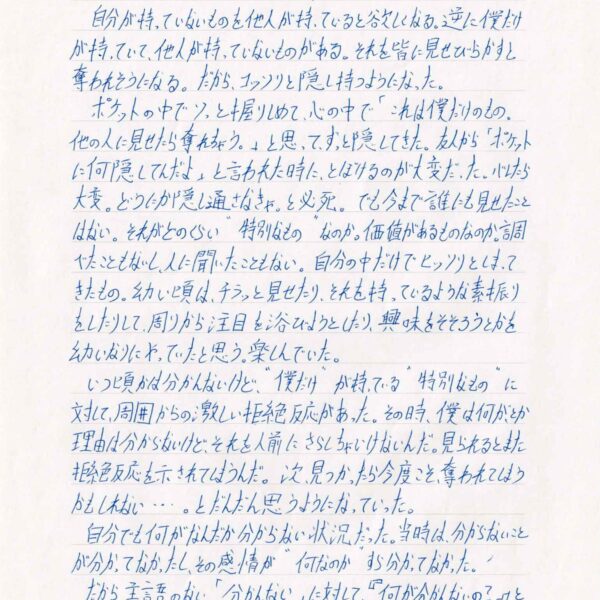 自分が持っていないものを他人が持っていると欲しくなる。逆に僕だけ
が持っていて、他人が持っていないものがある。それを皆に見せびらかすと
奪われそうになる。だから、コッソリと隠し持つようになった。
ポケットの中でソッと握りしめて、心の中で「これは僕だけのもの。
他の人に見せたら奪れちゃう。」と思って、ずっと隠してきた。友人から「ポケット
に何隠してんだよ」と言われた時に、とぼけるのが大変だった。バレたら
大変。どうにか隠し通さなきゃ。と必死。でも今まで誰にも見せたこと
はない。それがどのくらい“特別なもの”なのか。価値があるものなのか。調
べたこともないし、人に聞いたこともない。自分の中だけでヒッソリとしまって
きたもの。幼い頃は、チラッと見せたり、それを持っているような素振り
をしたりして、周りから注目を浴びようとしたり、興味をそそろうとかを
幼いなりにやっていたと思う。楽しんでいた。
いつ頃かは分かんないけど、“僕だけ”が持っている“特別なもの”に
対して、周囲からの激しい拒絶反応があった。その時、僕は何がとか
理由は分からないけど、それを人前にさらしちゃいけないんだ。見られるとまた
拒絶反応を示されてしまうんだ。次、見つかったら今度こそ、奪われてしまう
かもしれない…。とだんだん思うようになっていった。
自分でも何がなんだか分からない状況だった。当時は、分からないこと
が分かってなかったし、その感情が“何なのか”すら分かってなかった。
だから主語のない「分かんない」に対して、『「何が分かんないの？」』と